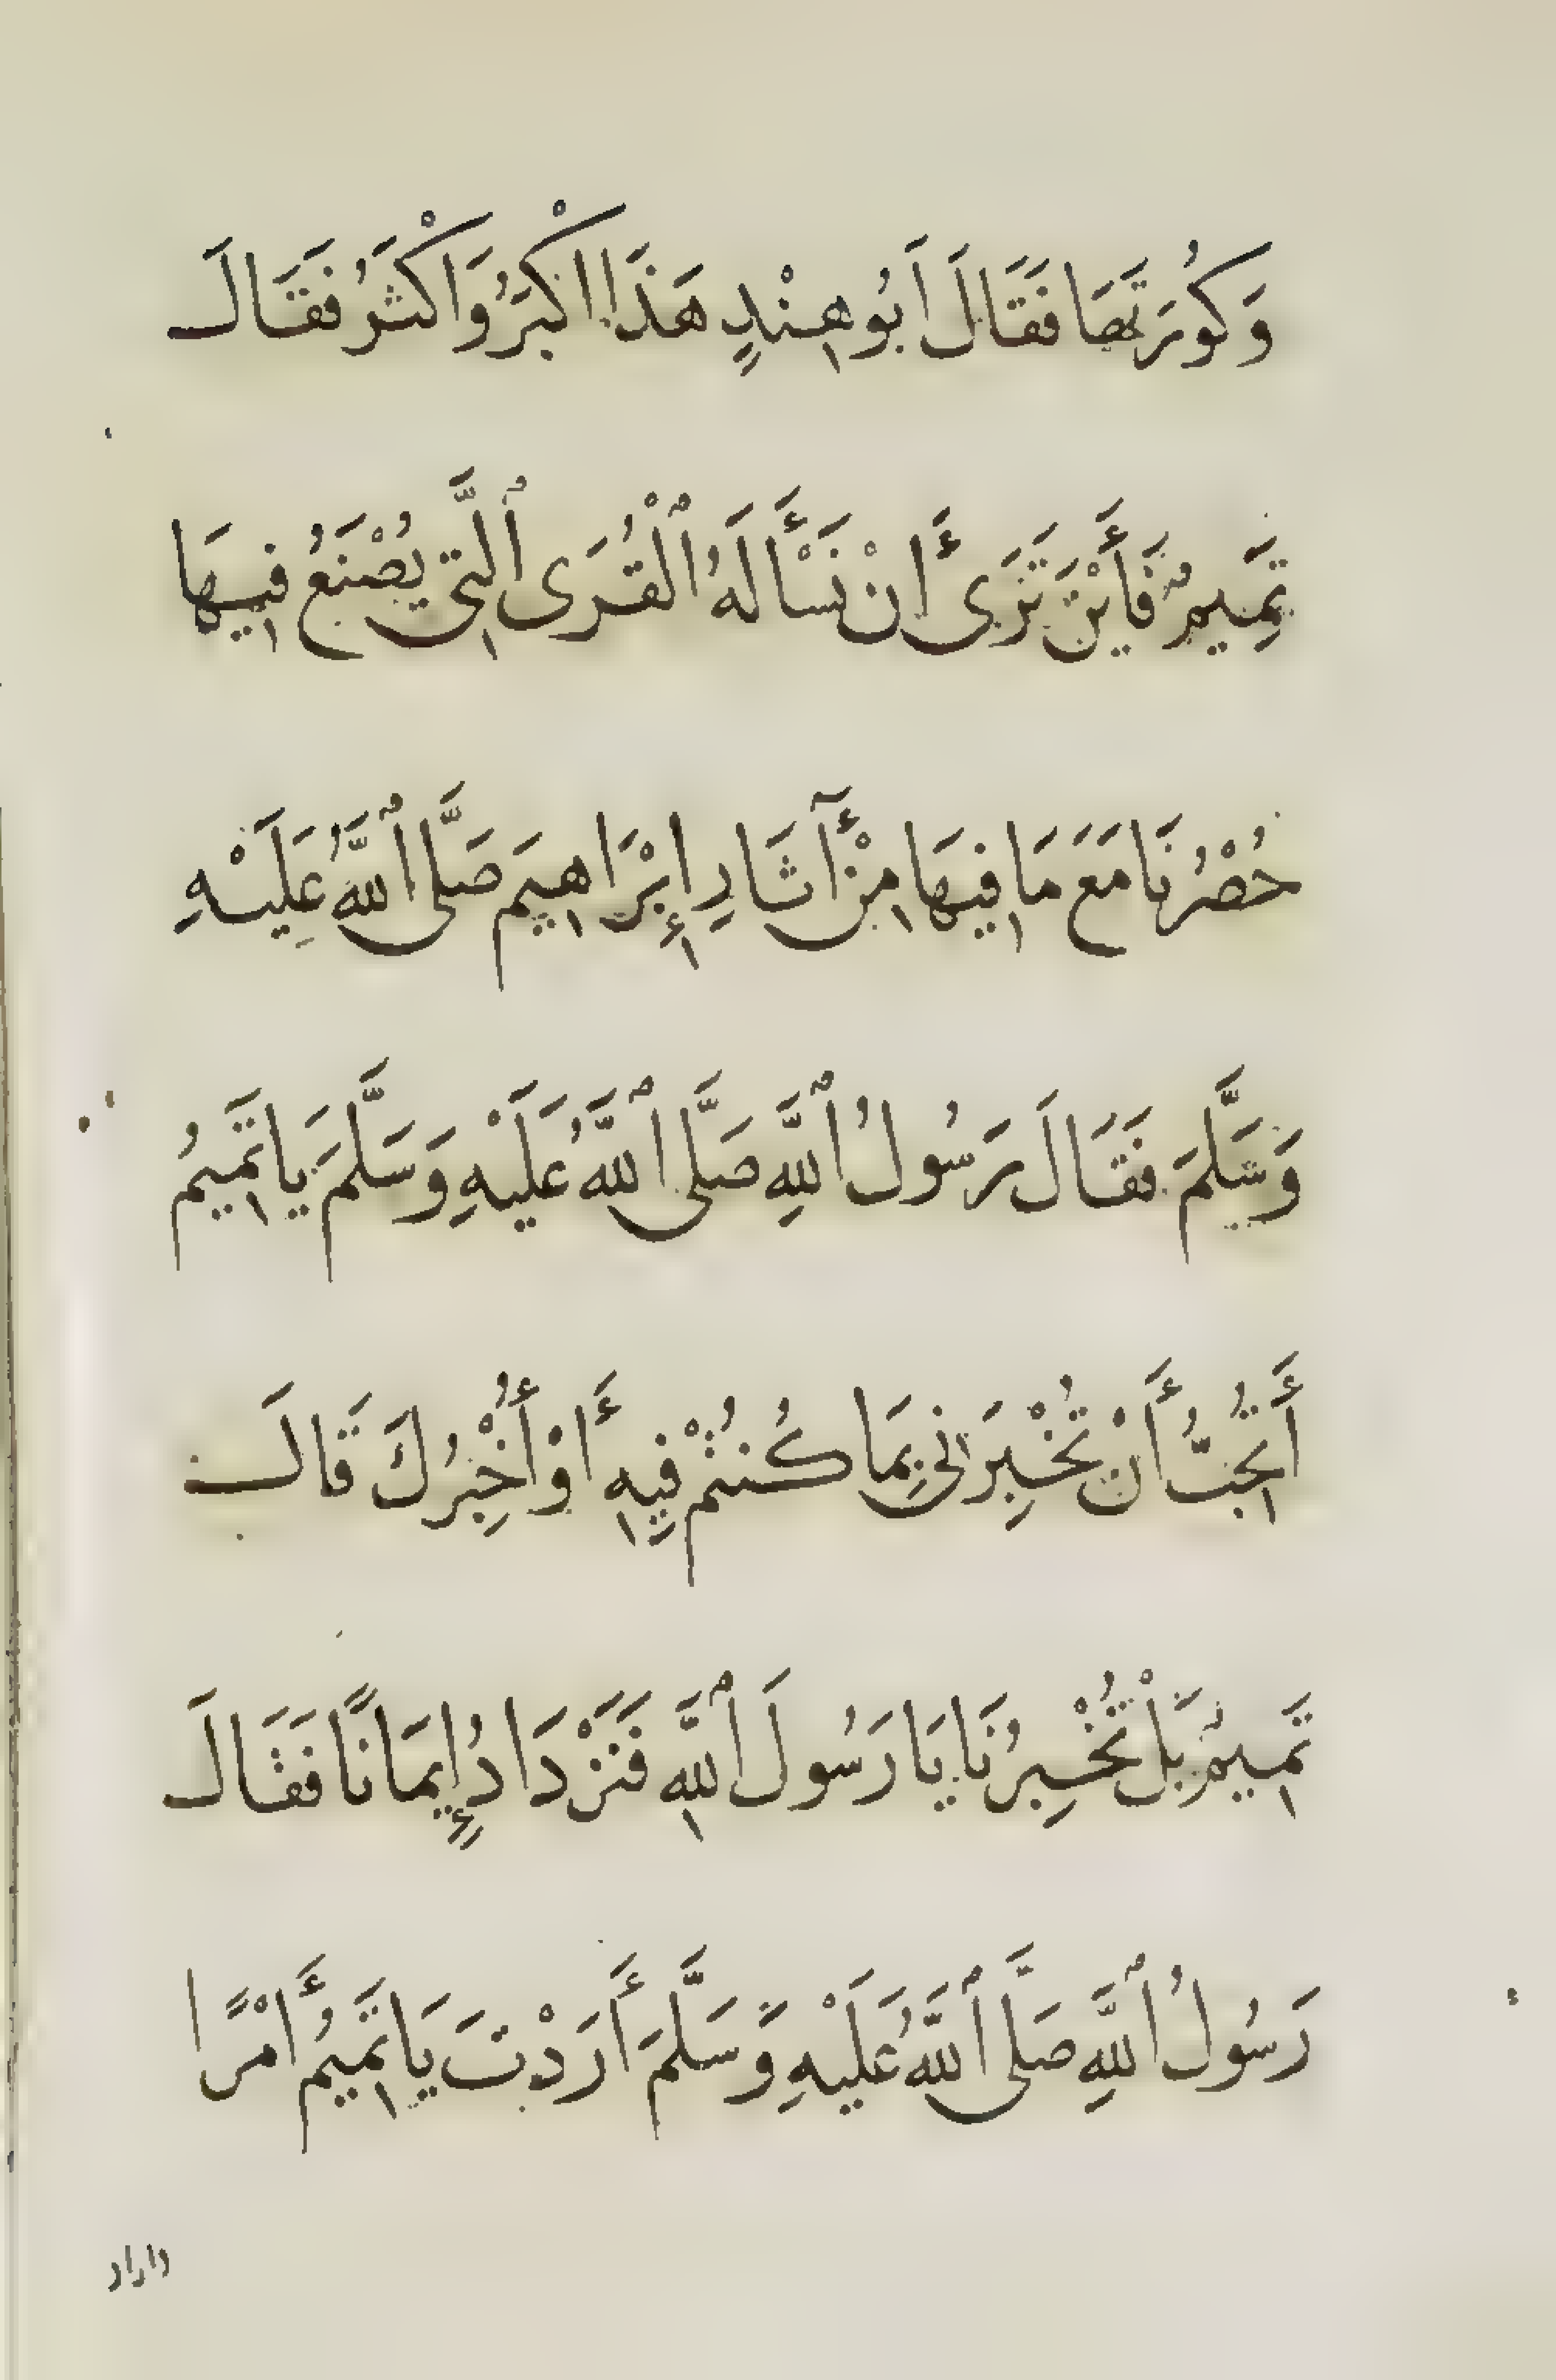 وَكُورَتَهَا فَقَالَ اَبُو هِنْدٍ هَذَا اكْبَرُ وَاكْثَرُ فَقَالَ
تَمِيمٌ فَأَيْنَ تَرَى أَنْ نَسْأَلَهُ ٱلْقُرَى ٱلَّتِي يُصْنَعُ فِيهَا
حُصْرُنَا مَعَ مَا فِيهَا مِنْ آثَارِ إِبْرَاهِيمَ صَلَّى ٱللَّهُ عَلَيْهِ
وَسَلَّمَ فَقَالَ رَسُولُ ٱللَّهِ صَلَّى ٱللَّهُ عَلَيْهِ وَسَلَّمَ يَا تَمِيمُ
أَتُحِبُّ أَنْ تُخْبِرَنِي بِمَا كُنْتُمْ فِيهِ أَوْ أُخْبِرُكَ قَالَ
تَمِيمٌ بَلْ تُخْبِرُنَا يَا رَسُولَ ٱللَّهِ فَنَزْدَادُ إِيمَانًا فَقَالَ
رَسُولُ ٱللَّهِ صَلَّى ٱللَّهُ عَلَيْهِ وَسَلَّمَ أَرَدْتَ يَا تَمِيمُ أَمْرًا
واراد